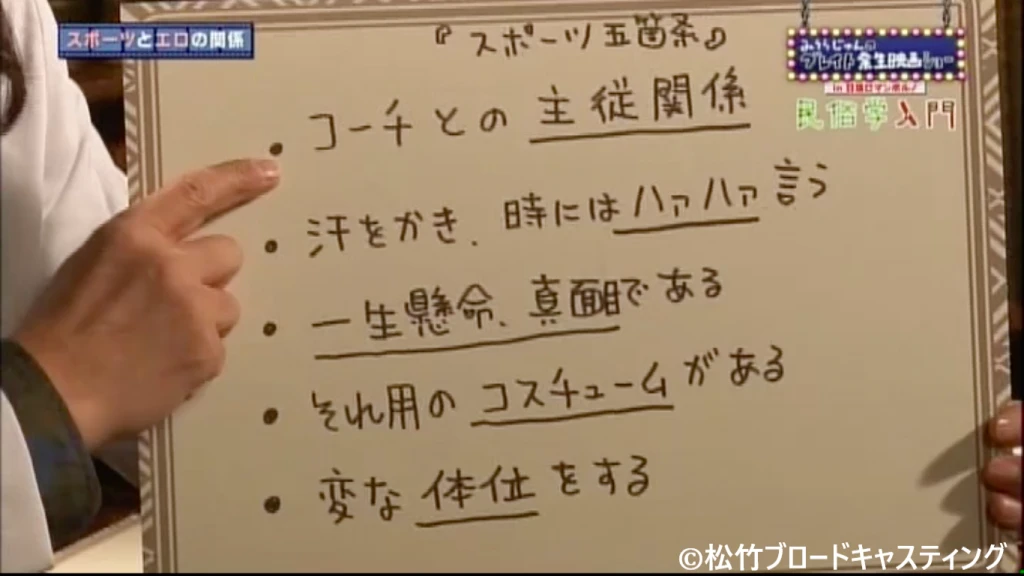 スポーツとエロの関係
みうらじゅんの
グレイト余生映画ショー
in 日活ロマンポルノ
民俗学入門
『スポーツ五箇条』
・コーチとの主従関係
・汗をかき、時にはハァハァ言う
・一生懸命、真面目である
・それ用のコスチュームがある
・変な体位をする
©松竹ブロードキャスティング